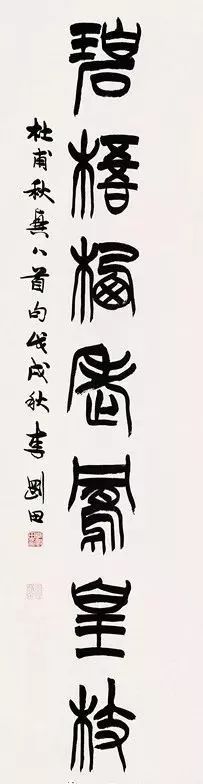 碧梧栖老鳳皇枝
杜甫秋興八首句戊戌秋李剛田